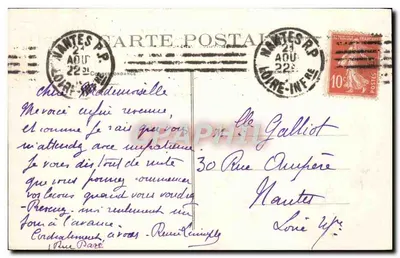 CARTE POSTALE
NANTES R.P.
21
AOU
22
LOIRE-INFRE
NANTES R.P.
21
AOU
22
LOIRE-INFRE
10
Chère Mademoiselle
Me voici enfin revenue
et comme je sais que vous
m'attendez avec impatience
je vous dis tout de suite
que vous pouvez commencer
vos leçons quand vous voudrez
moi seulement un
jour à l'avance
Cordialement à vous
Rue
Mlle Galliot
30 Rue Ampère
Nantes
Loire Infre